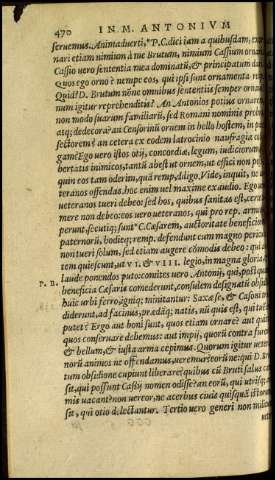 470 IN M. ANTONIVM
seruemus. Animaduerti, P.C. dici iam a quibusdam, ex
nari etiam nimium à me Brutum, nimium Cassium ornari
Cassio vero sententia mea dominatū, & principatum dari
Quos ego orno? nempe eos, qui ipsi sunt ornamenta reip.
Quid? D. Brutum nōne omnibus sententiis semper orna
num igitur reprehenditis? An Antonios potius ornarem
non modo suarum familiarū, sed Romani nominis probra
atq; dedecora? an Censorinū ornem in bello hostem, in pa
sectorem? an cetera ex eodem latrocinio naufragia col
gam? Ego vero istos otij, concordiæ, legum, iudiciorum
bertatis inimicos, tantū abest ut ornem, ut effici non pos
quin eos tam oderim, quā remp. diligo. Vide, inquit, ne
teranos offendas. hoc enim uel maxime ex audio. Ego
ueteranos tueri debeo: sed hos, quibus sanitas est, certe
mere non debeo: eos uero ueteranos, qui pro rep. arma
perunt, secutiq; sunt C. Cæsarem, auctoritate beneficiorum
paternorū, hodieq; remp. defendunt cum magno pericu
non tueri solum, sed etiam augere cōmodis debeo: qui
tem quiescunt, ut VI. & VIII. legio, in magna gloria &
laude ponendos puto: comites uero Antonij, qui, postq
P. B. beneficia Cæsaris comederunt, consulem designatū obsi
huic urbi ferro, igniq; minitantur: Saxæ se, & Caphoni
diderunt, ad facinus, prædāq; natis, nū quis est, qui tue
putet? Ergo aut boni sunt, quos etiam ornare: aut qui
quos conseruare debemus: aut impij, quorū contra furo
& bellum, & iusta arma cepimus. Quorum igitur ueter
norū animos ne offendamus, ueremur? eorū ne: qui D. Bru
tum obsidione cupiunt liberare? quibus cū Bruti salus ca
sit, qui possunt Cassij nomen odisse? an eorū, qui utrisq;
mis uacant? non uereor, ne acerbus cuiquā istorum
sit, qui otio delectantur. Tertio uero generi non mili